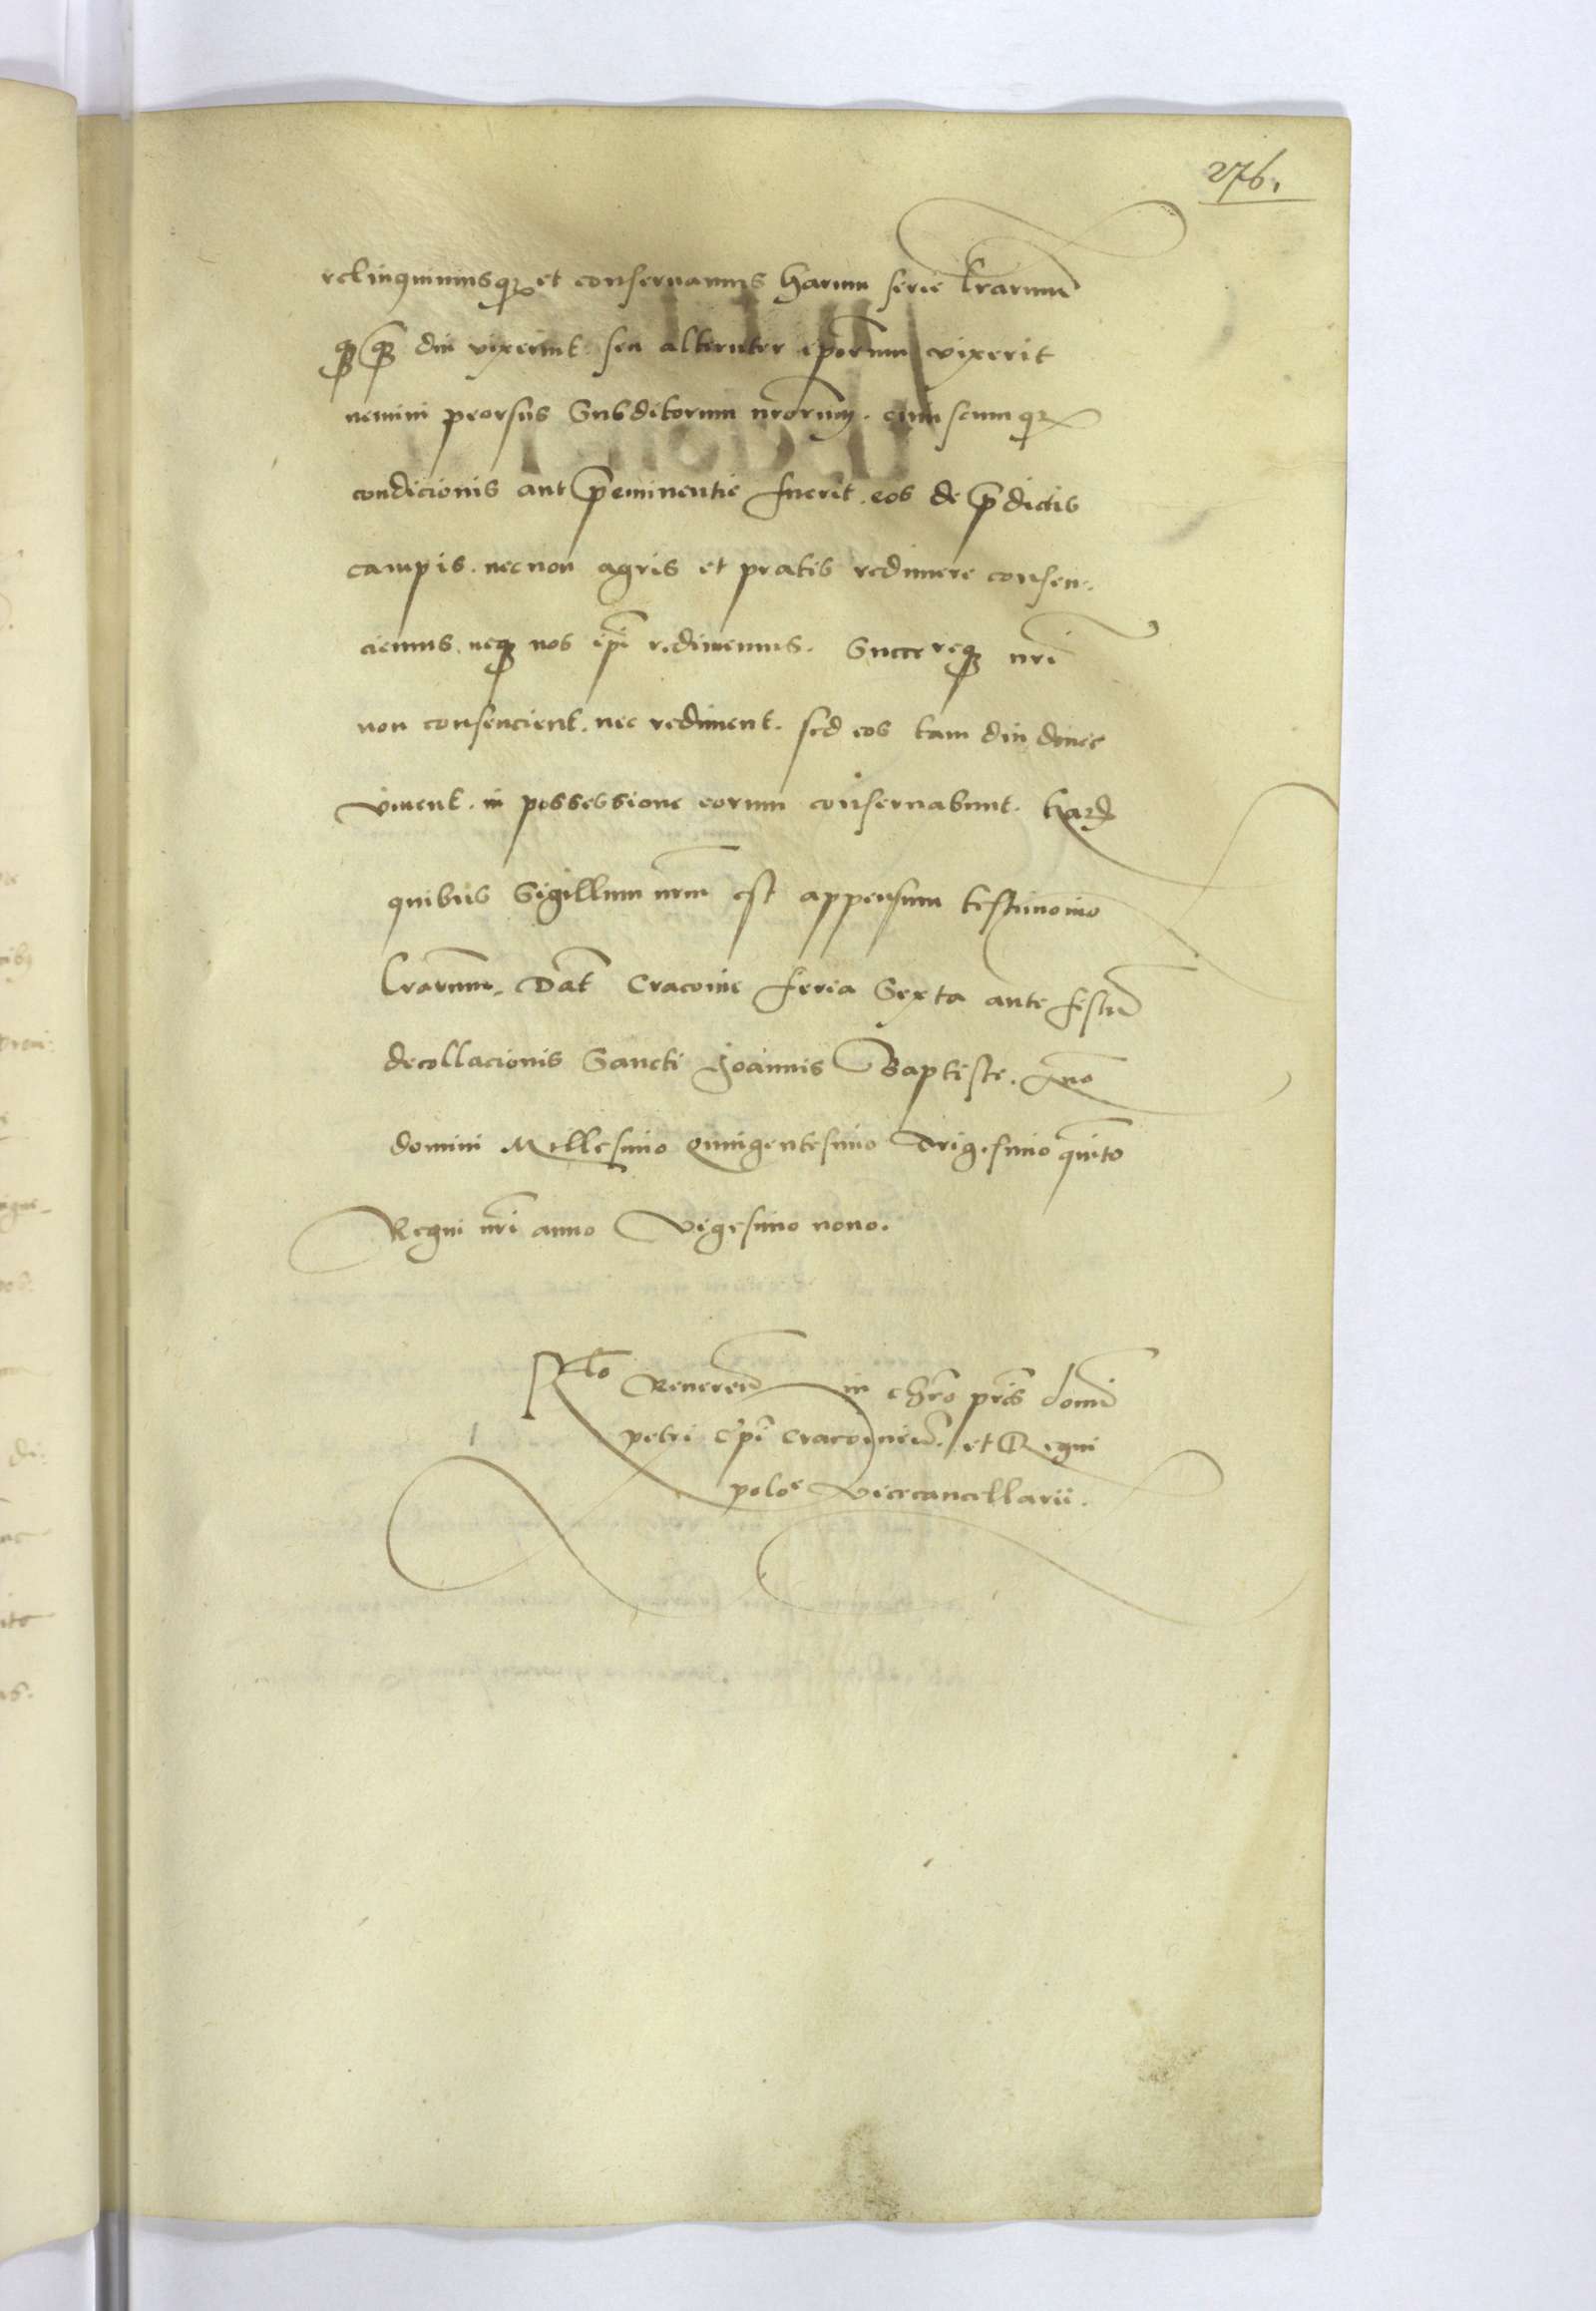 276.
relinquimusq3 et conservamus harum serie l̃rarum
q3 q3 diu vixerint seu alteruter ip̃orum vixerit
nemini prorsus Subditorum nr̃orum. cuiuscumq3
condicionis aut p̃eminentie fuerit. eos de p̃dictis
campis. necnon agris et pratis redimere consen-
ciemus. neq3 nos ip̃i redimemus. Succ̃req3 nr̃i
non consencient. nec rediment. sed eos tam diu donec
vivent. in possessione eorum conservabunt. har̃
quibus Sigillum nr̃m est appensum testimonio
l̃rarum. Dat̃ Cracovie feria Sexta ante festũ
decollacionis Sancti Joannis Baptiste. Año
domini Millesimo Quingentesimo Trigesimo quinto
Regni nr̃i anno Vigesimo nono.
R̃lo Reveren̄ in chr̃o pr̃is domĩ
petri Ep̃i Cracovieñ. et Regni
poloe Vicecancellarii.